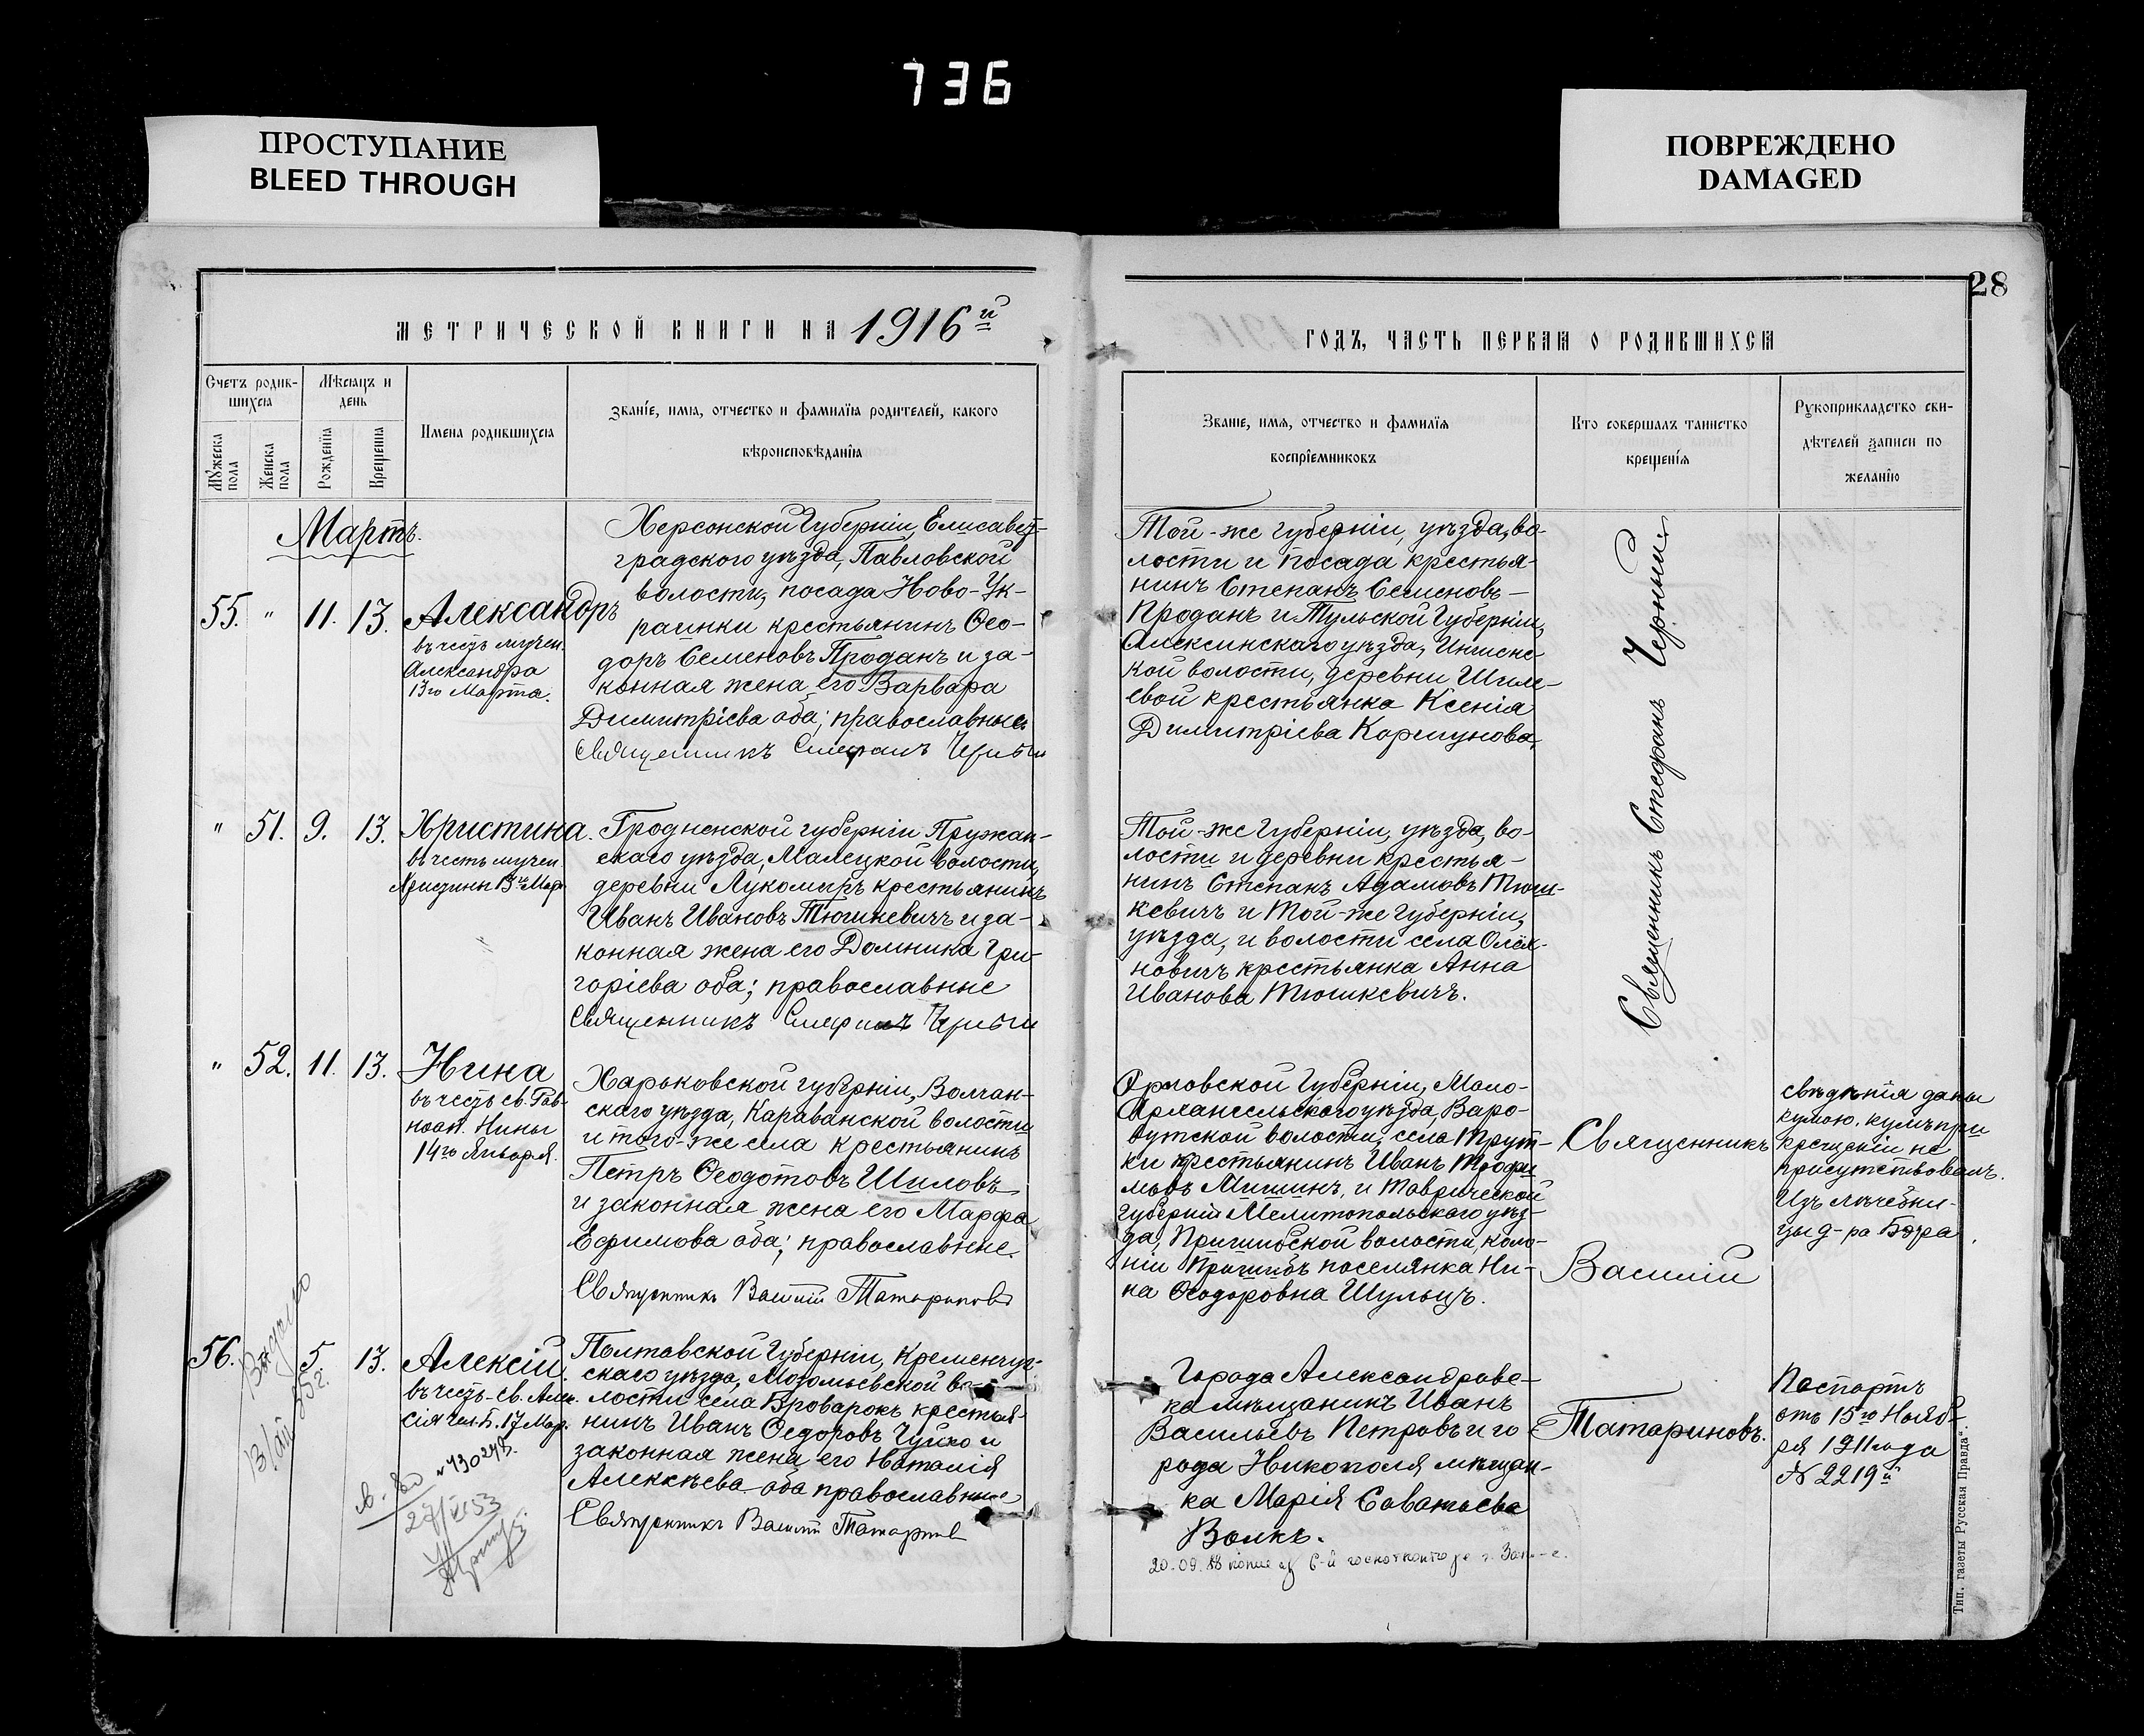 736
ПРОСТУПАНИЕ
BLEED THROUGH
ПОВРЕЖДЕНО
DAMAGED
28
МЕТРИЧЕСКОЙ КНИГИ НА 1916й
ГОДЪ, ЧАСТЬ ПЕРВАЯ О РОДИВШИХСЯ
Счетъ родив-
шихся
Мужеска
пола
Женска
пола
Мѣсяцъ и
день
Рожденїя
Крещенїя
Имена родившихся
Званїе, имя, отчество и фамилїя родителей, какого
вѣроисповѣданїя
Званїе, имя, отчество и фамилїя
воспрїемниковъ
Кто совершалъ таинство
крещенїя
Рукоприкладство сви-
дѣтелей записи по
желанїю
Мартъ.
55. " 11. 13. Александръ
въ честь мучен.
Александра
13го Марта.
Херсонской Губернiи, Елисавет-
градского уѣзда, Павловской
волости, посада Ново-Ук-
раинки крестьянинъ Ѳео-
доръ Семеновъ Проданъ и за-
конная жена его Варвара
Димитрiева оба; православные
Священникъ Стефанъ Черный
Той-же губернiи, уѣзда, во-
лости и посада крестья-
нинъ Степанъ Семеновъ-
Проданъ и Тульской Губернiи,
Алексинскаго уѣзда,
кой волости, деревни Шиле-
евой крестьянка Ксенiя
Димитрiева Коршунова.
Священникъ Стефанъ Черный.
" 51. 9. 13. Христина.
въ честь мучен.
Христины 13го Мар.
Гродненской губернiи Пружан-
скаго уѣзда, Малецкой волости,
деревни Лукомиръ крестьянинъ
Иванъ Ивановъ Тюшкевичъ и за-
конная жена его Домника Гри-
горiева оба; православные
Священникъ Стефанъ Черный
Той-же Губернiи, уѣзда, во-
лости и деревни крестья-
нинъ Степанъ Адамовъ Тюш-
кевичъ и Той-же Губернiи,
уѣзда, и волости села
новичъ крестьянка Анна
Иванова Тюшкевичъ.
" 52. 11. 13. Нина
въ честь св. Рав-
ноап. Нины
14го Января.
Харьковской губернiи, Волчан-
скаго уѣзда, Караванской волости
и того-же села крестьянинъ
Петръ Ѳеодотовъ Шиловъ
и законная жена его Марѳа
Ефимова оба; православные.
Священникъ Василiй Татариновъ
Орловской Губернiи, Мало-
Архангельскаго уѣзда,
волости, села Трут-
ки крестьянинъ Иванъ Трофи-
мовъ Мишинъ, и Таврической
Губернiи Мелитопольскаго уѣз-
да, Пришибской волости, коло-
нiи Пришибъ поселянка Ни-
на Ѳеодоровна Шульцъ.
Священникъ
Василiй
Татариновъ.
свѣдѣнiя даны
кумою, кумъ при
крещенiи не
присутствовалъ.
Изъ лѣчебни-
цы д-ра
56. 5. 13. Алексiй.
въ честь св. Алек-
сiя чел. Б. 17 Мар.
Полтавской Губернiи, Кременчуг-
скаго уѣзда, во-
лости села Броварокъ крестья-
нинъ Иванъ Ѳедоровъ Чуйко и
законная жена его Наталiя
Алексѣева оба православные
Священникъ Василiй Татариновъ
Города Александровс-
ка мѣщанинъ Иванъ
Васильевъ Петровъ и го-
рода Никополя мѣщан-
ка Марiя Саватьева
Волкъ.
Паспортъ
отъ 15го Нояб-
ря 1911 года
№ 2219й
20.09.
Тип. газеты „Русская Правда“.